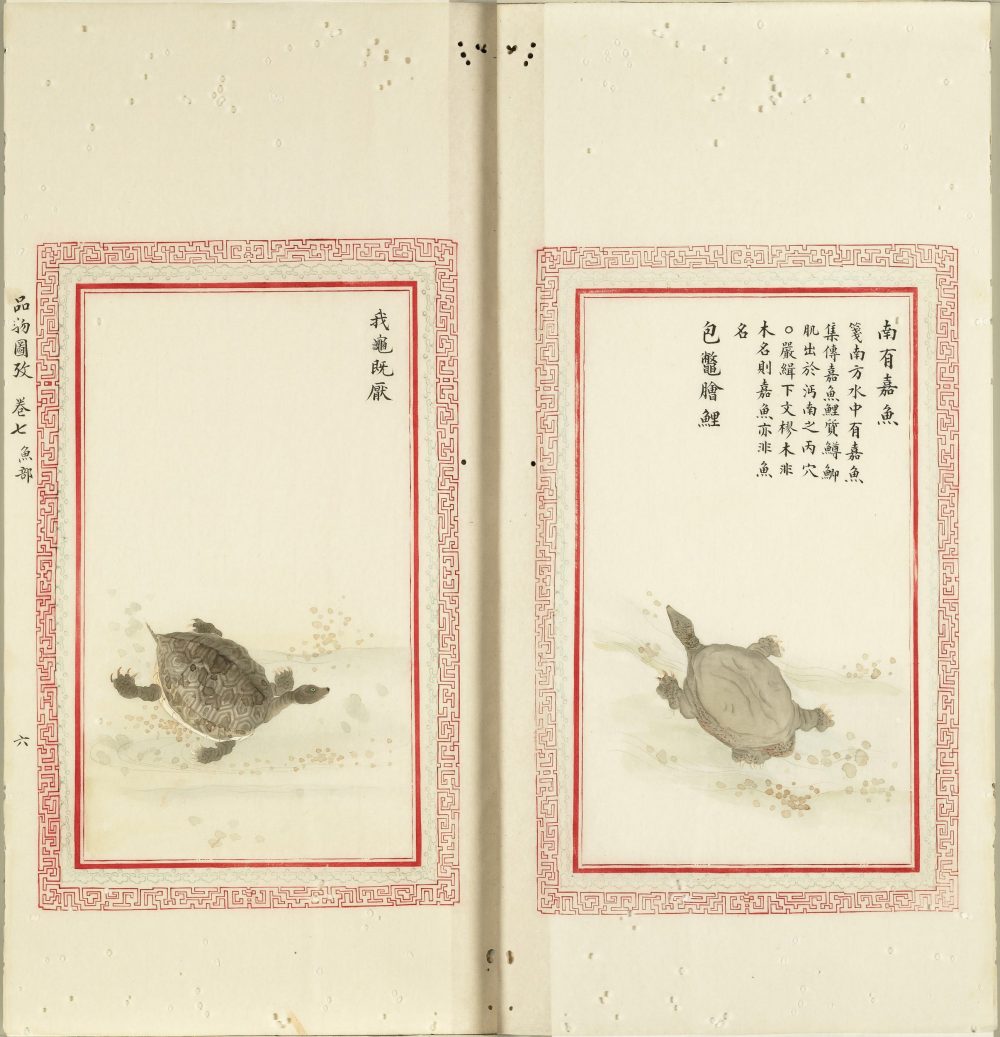 南有嘉魚
箋南方水中有嘉魚
集傳嘉魚鯉質鱒鯽
肌出於沔南之丙穴
○嚴緝下文樛木非
木名則嘉魚亦非魚
名
包鼈膾鯉
我龜既厭
品物圖攷 卷七 魚部
六